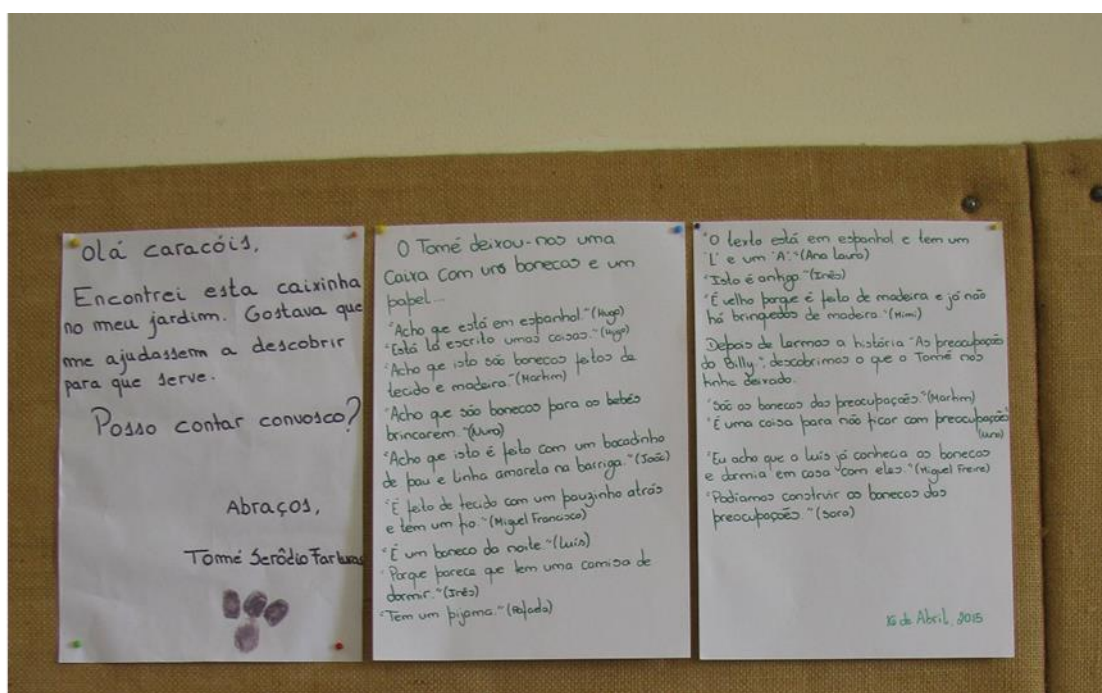 Olá caracóis,
Encontrei esta caixinha
no meu jardim. Gostava que
me ajudassem a descobrir
para que serve.
Posso contar convosco?
Abraços,
Tomé Serôdio Farturas
O Tomé deixou-nos uma
caixa com uns bonecos e um
papel...
"Acho que está em espanhol." (Hugo)
"Está lá escrito umas coisas." (Hugo)
"Acho que isto são bonecos feitos de
tecido e madeira." (Martim)
"Acho que são bonecos para os bebés
brincarem." (Nuno)
"Acho que isto é feito com um bocadinho
de pau e linha amarela na barriga." (João)
"É feito de tecido com um pauzinho atrás
e tem um fio." (Miguel Francisco)
"É um boneco da noite." (Luís)
"Porque parece que tem uma camisa de
dormir." (Inês)
"Tem um pijama." (Rafaela)
"O texto está em espanhol e tem um
"L" e um "A"." (Ana Laura)
"Isto é antigo." (Inês)
"É velho porque é feito de madeira e já não
há brinquedos de madeira." (Mimi)
Depois de lermos a história "As preocupações
do Billy", descobrimos o que o Tomé nos
tinha deixado.
"São os bonecos das preocupações." (Martim)
"É uma coisa para não ficar com preocupações"
(Nuno)
"Eu acho que o Luís já conhecia os bonecos
e dormia em casa com eles." (Miguel Freire)
"Podíamos construir os bonecos das
preocupações." (Sara)
16 de Abril, 2015